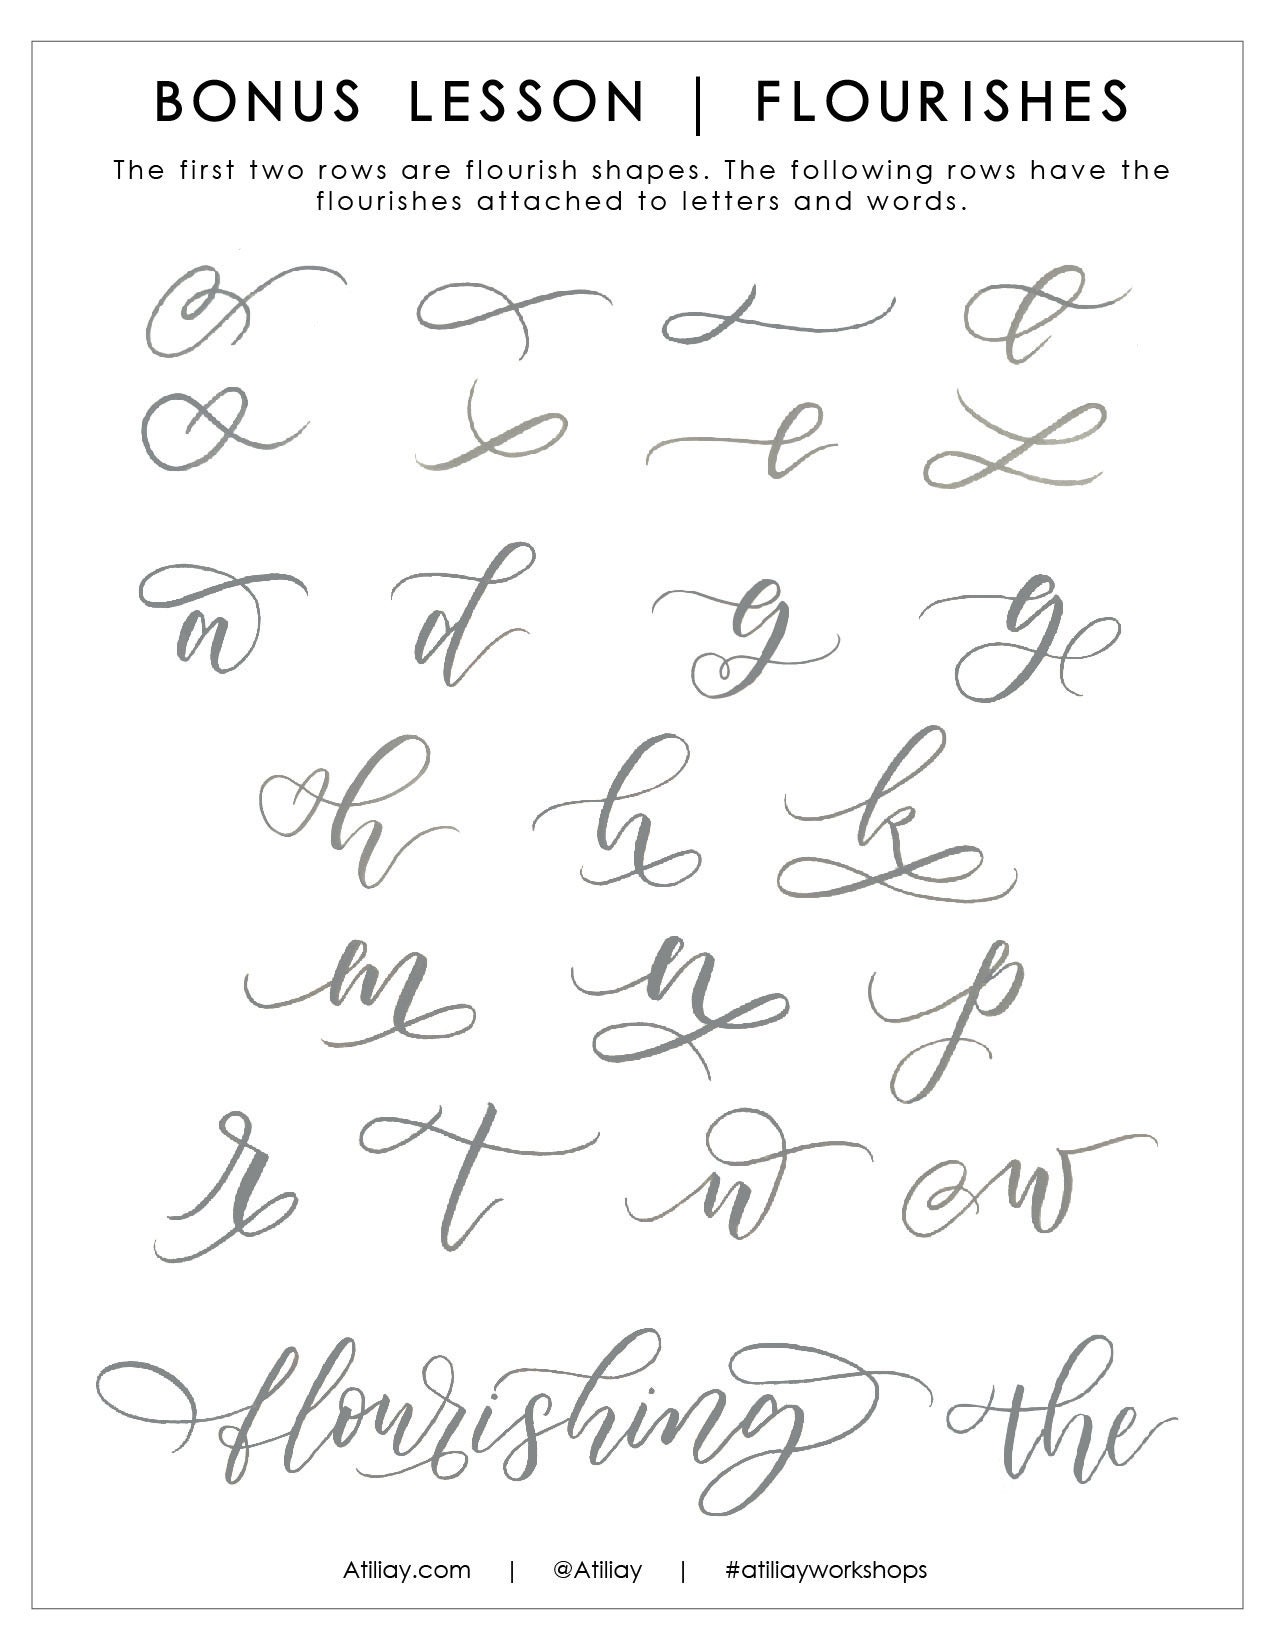 BONUS LESSON | FLOURISHES
The first two rows are flourish shapes. The following rows have the
flourishes attached to letters and words.
a d g g
h h k
m n p
r t n w
flourishing the
Atiliay.com | @Atiliay | #atiliayworkshops